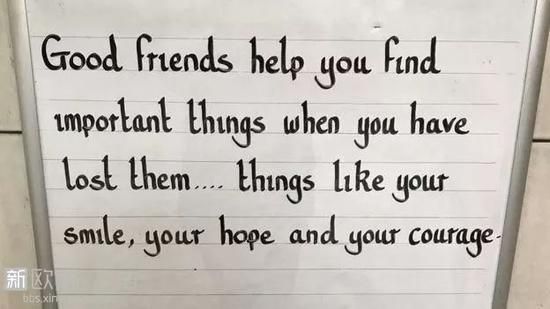 Good friends help you find
important things when you have
lost them.... things like your
smile, your hope and your courage.
新欧
bbs.xin